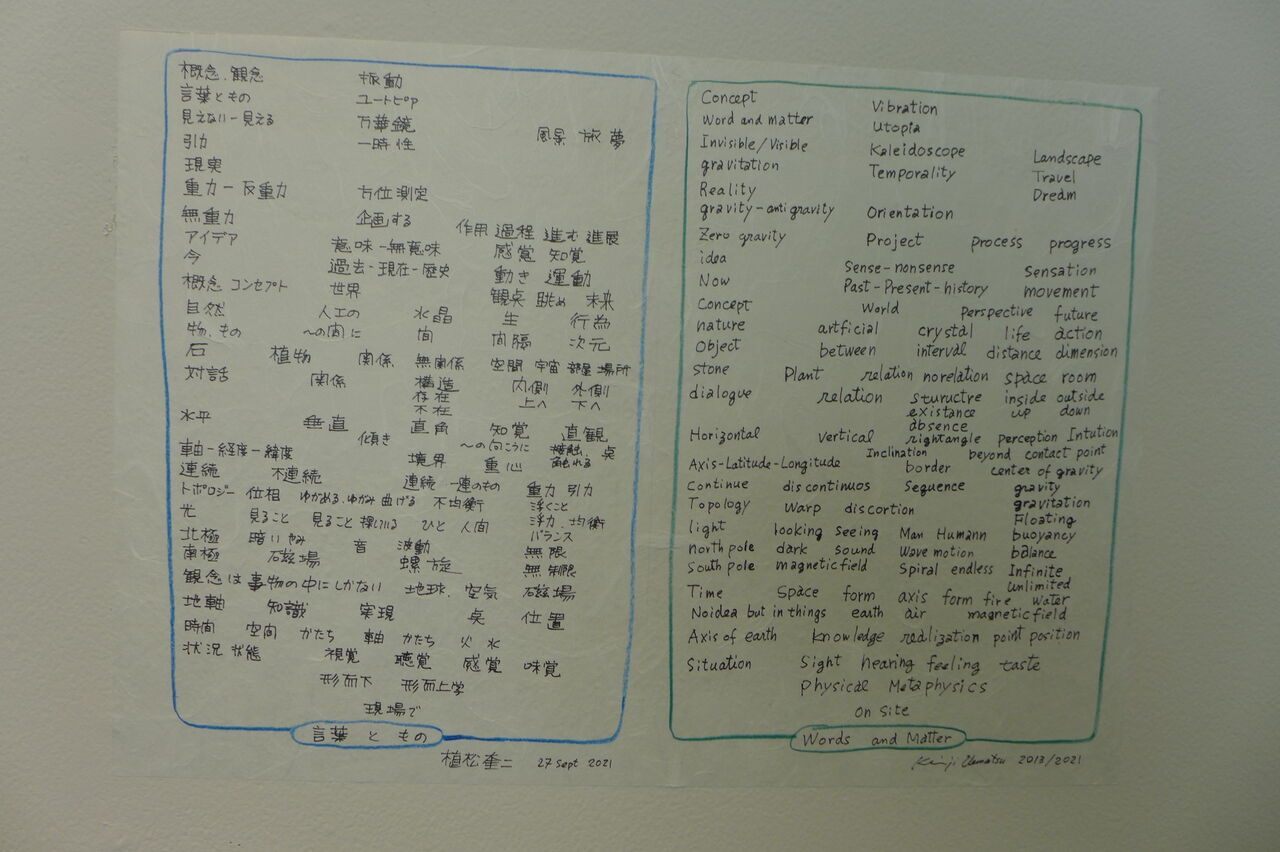 概念、観念 振動
言葉ともの ユートピア
見えない－見える 万華鏡 風景 旅 夢
引力 一時性
現実
重力－反重力 方位測定
無重力 企画する 作用 過程 進む 進展
アイデア 意味－無意味 感覚 知覚
今 過去－現在－歴史 動き 運動
概念 コンセプト 世界 観点 眺め 未来
自然 人工の 水晶 生 行為
物、もの 〜の間に 間 間隔 次元
石 植物 関係 無関係 空間 宇宙 部屋 場所
対話 関係 構造 内側 外側
存在 上へ 下へ
不在
水平 垂直 直角 知覚 直観
傾き 〜の向こうに 接触、点
軸－経度－緯度 境界 重心 触れる
連続 不連続 連続 一連のもの 重力 引力
トポロジー 位相 ゆがめる ゆがみ 曲げる 不均衡 浮くこと
光 見ること 見ること ひと 人間 浮力、均衡
バランス
北極 暗い 音 波動 無限
南極 磁場 螺旋 無制限
観念は事物の中にしかない 地球、空気 磁場
地軸 知識 実現 点 位置
時間 空間 かたち 軸 かたち 火 水
状況 状態 視覚 聴覚 感覚 味覚
形而下 形而上学
現場で
言葉 と もの
植松奎二 27 Sept 2021
Concept Vibration
Word and matter Utopia
Invisible/Visible Kaleidoscope Landscape
gravitation Temporality Travel
Reality Dream
gravity-anti gravity Orientation
Zero gravity Project process progress
idea Sense-nonsense Sensation
Now Past-Present-history movement
Concept World perspective future
nature artificial crystal life action
Object between interval distance dimension
stone Plant relation norelation space room
dialogue relation sturuct­re inside outside
existance up down
absence
Horizontal vertical rightangle perception Intution
Inclination beyond contact point
Axis-Latitude-Longitude border center of gravity
Continue discontinuos Sequence gravity
Topology warp discortion gravitation
Floating
light looking seeing Man Humann buoyancy
north pole dark sound wave motion balance
South pole magnetic field Spiral endless Infinite
unlimited
Time Space form axis form fire water
Noidea but in things earth air magnetic field
Axis of earth knowledge realization point position
Situation Sight hearing feeling taste
Physical Metaphysics
on site
Words and Matter
Keiji Uematsu 2013/2021